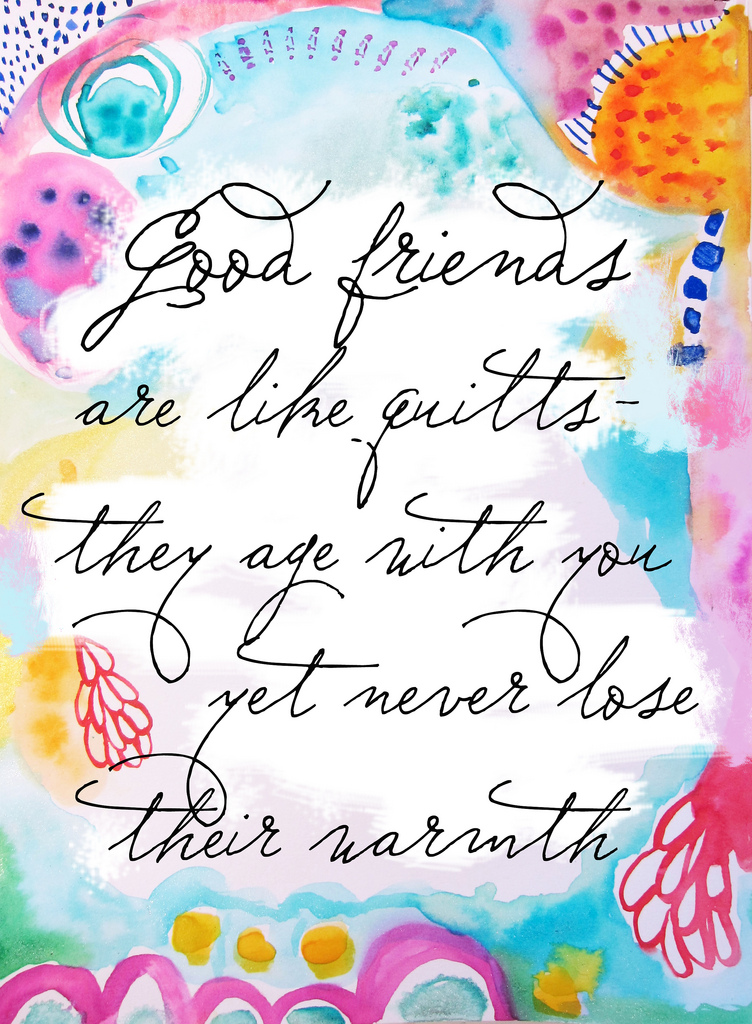 Good friends
are like quilts-
they age with you
yet never lose
their warmth